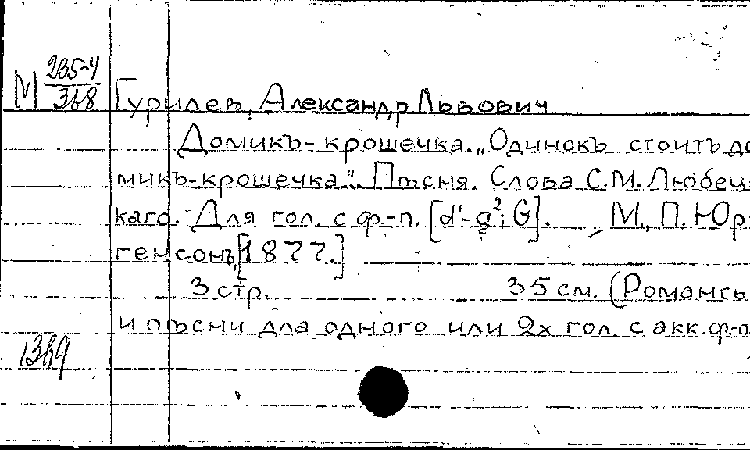 М 235-4/368
Гурилев, Александр Львович
Домикъ-крошечка. „Одинокъ стоитъ до
микъ-крошечка". Пѣсня. Слова С.М. Любец
каго. Для гол. с ф-п. [d¹-g²; G]. М., П. Юр
генсонъ, [1877.]
3 стр. 35 см. (Романсы
и пѣсни для одного или 2х гол. с акк. ф-п
1389